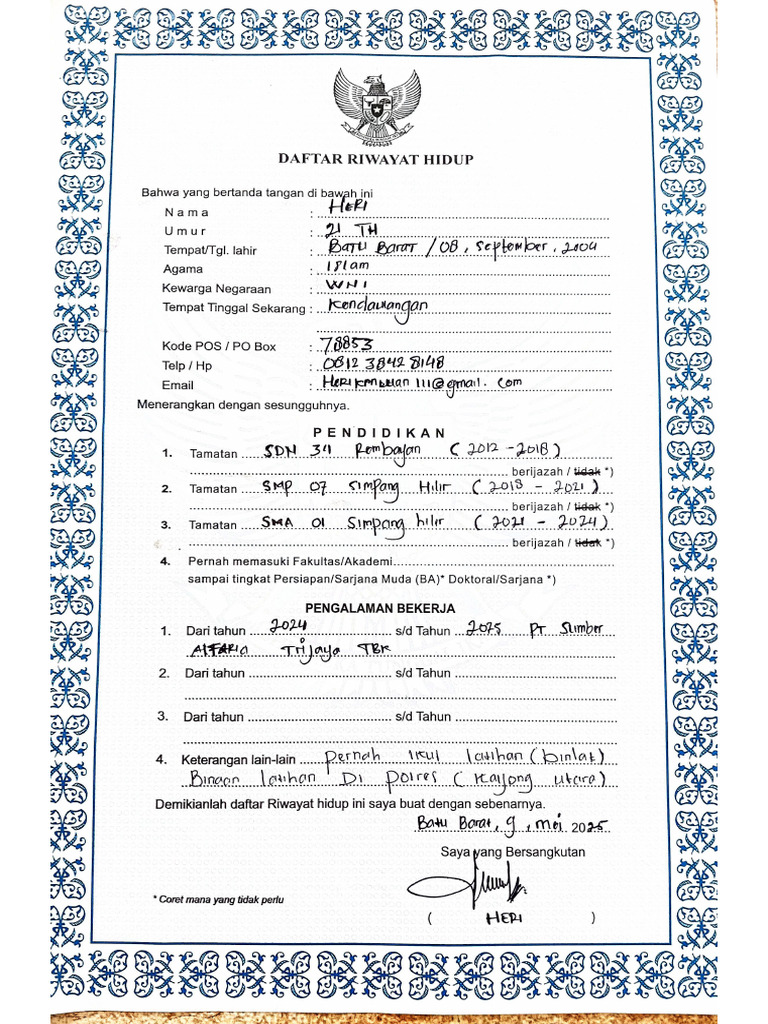 DAFTAR RIWAYAT HIDUP
Bahwa yang bertanda tangan di bawah ini
Nama : HERI
Umur : 21 TH
Tempat/Tgl. lahir : Batu Barat / 08, September, 2004
Agama : Islam
Kewarga Negaraan : WNI
Tempat Tinggal Sekarang : Kendawangan
Kode POS / PO Box : 78853
Telp / Hp : 0812 3842 8148
Email : 111@gmail.com
Menerangkan dengan sesungguhnya.
PENDIDIKAN
1. Tamatan SDN 34 Rembayan (2012 - 2018)
berijazah / tidak *)
2. Tamatan SMP 07 Simpang Hilir (2018 - 2021)
berijazah / tidak *)
3. Tamatan SMA 01 Simpang hilir (2021 - 2024)
berijazah / tidak *)
4. Pernah memasuki Fakultas/Akademi
sampai tingkat Persiapan/Sarjana Muda (BA)* Doktoral/Sarjana *)
PENGALAMAN BEKERJA
1. Dari tahun 2024 s/d Tahun 2025 PT Sumber
Alfaria Trijaya TBK
2. Dari tahun s/d Tahun
3. Dari tahun s/d Tahun
4. Keterangan lain-lain Pernah ikut latihan (binlat)
Binaan latihan Di Polres (Kayong utara)
Demikianlah daftar Riwayat hidup ini saya buat dengan sebenarnya.
Batu Barat, 9, mei 2025
Saya yang Bersangkutan
* Coret mana yang tidak perlu
( HERI )